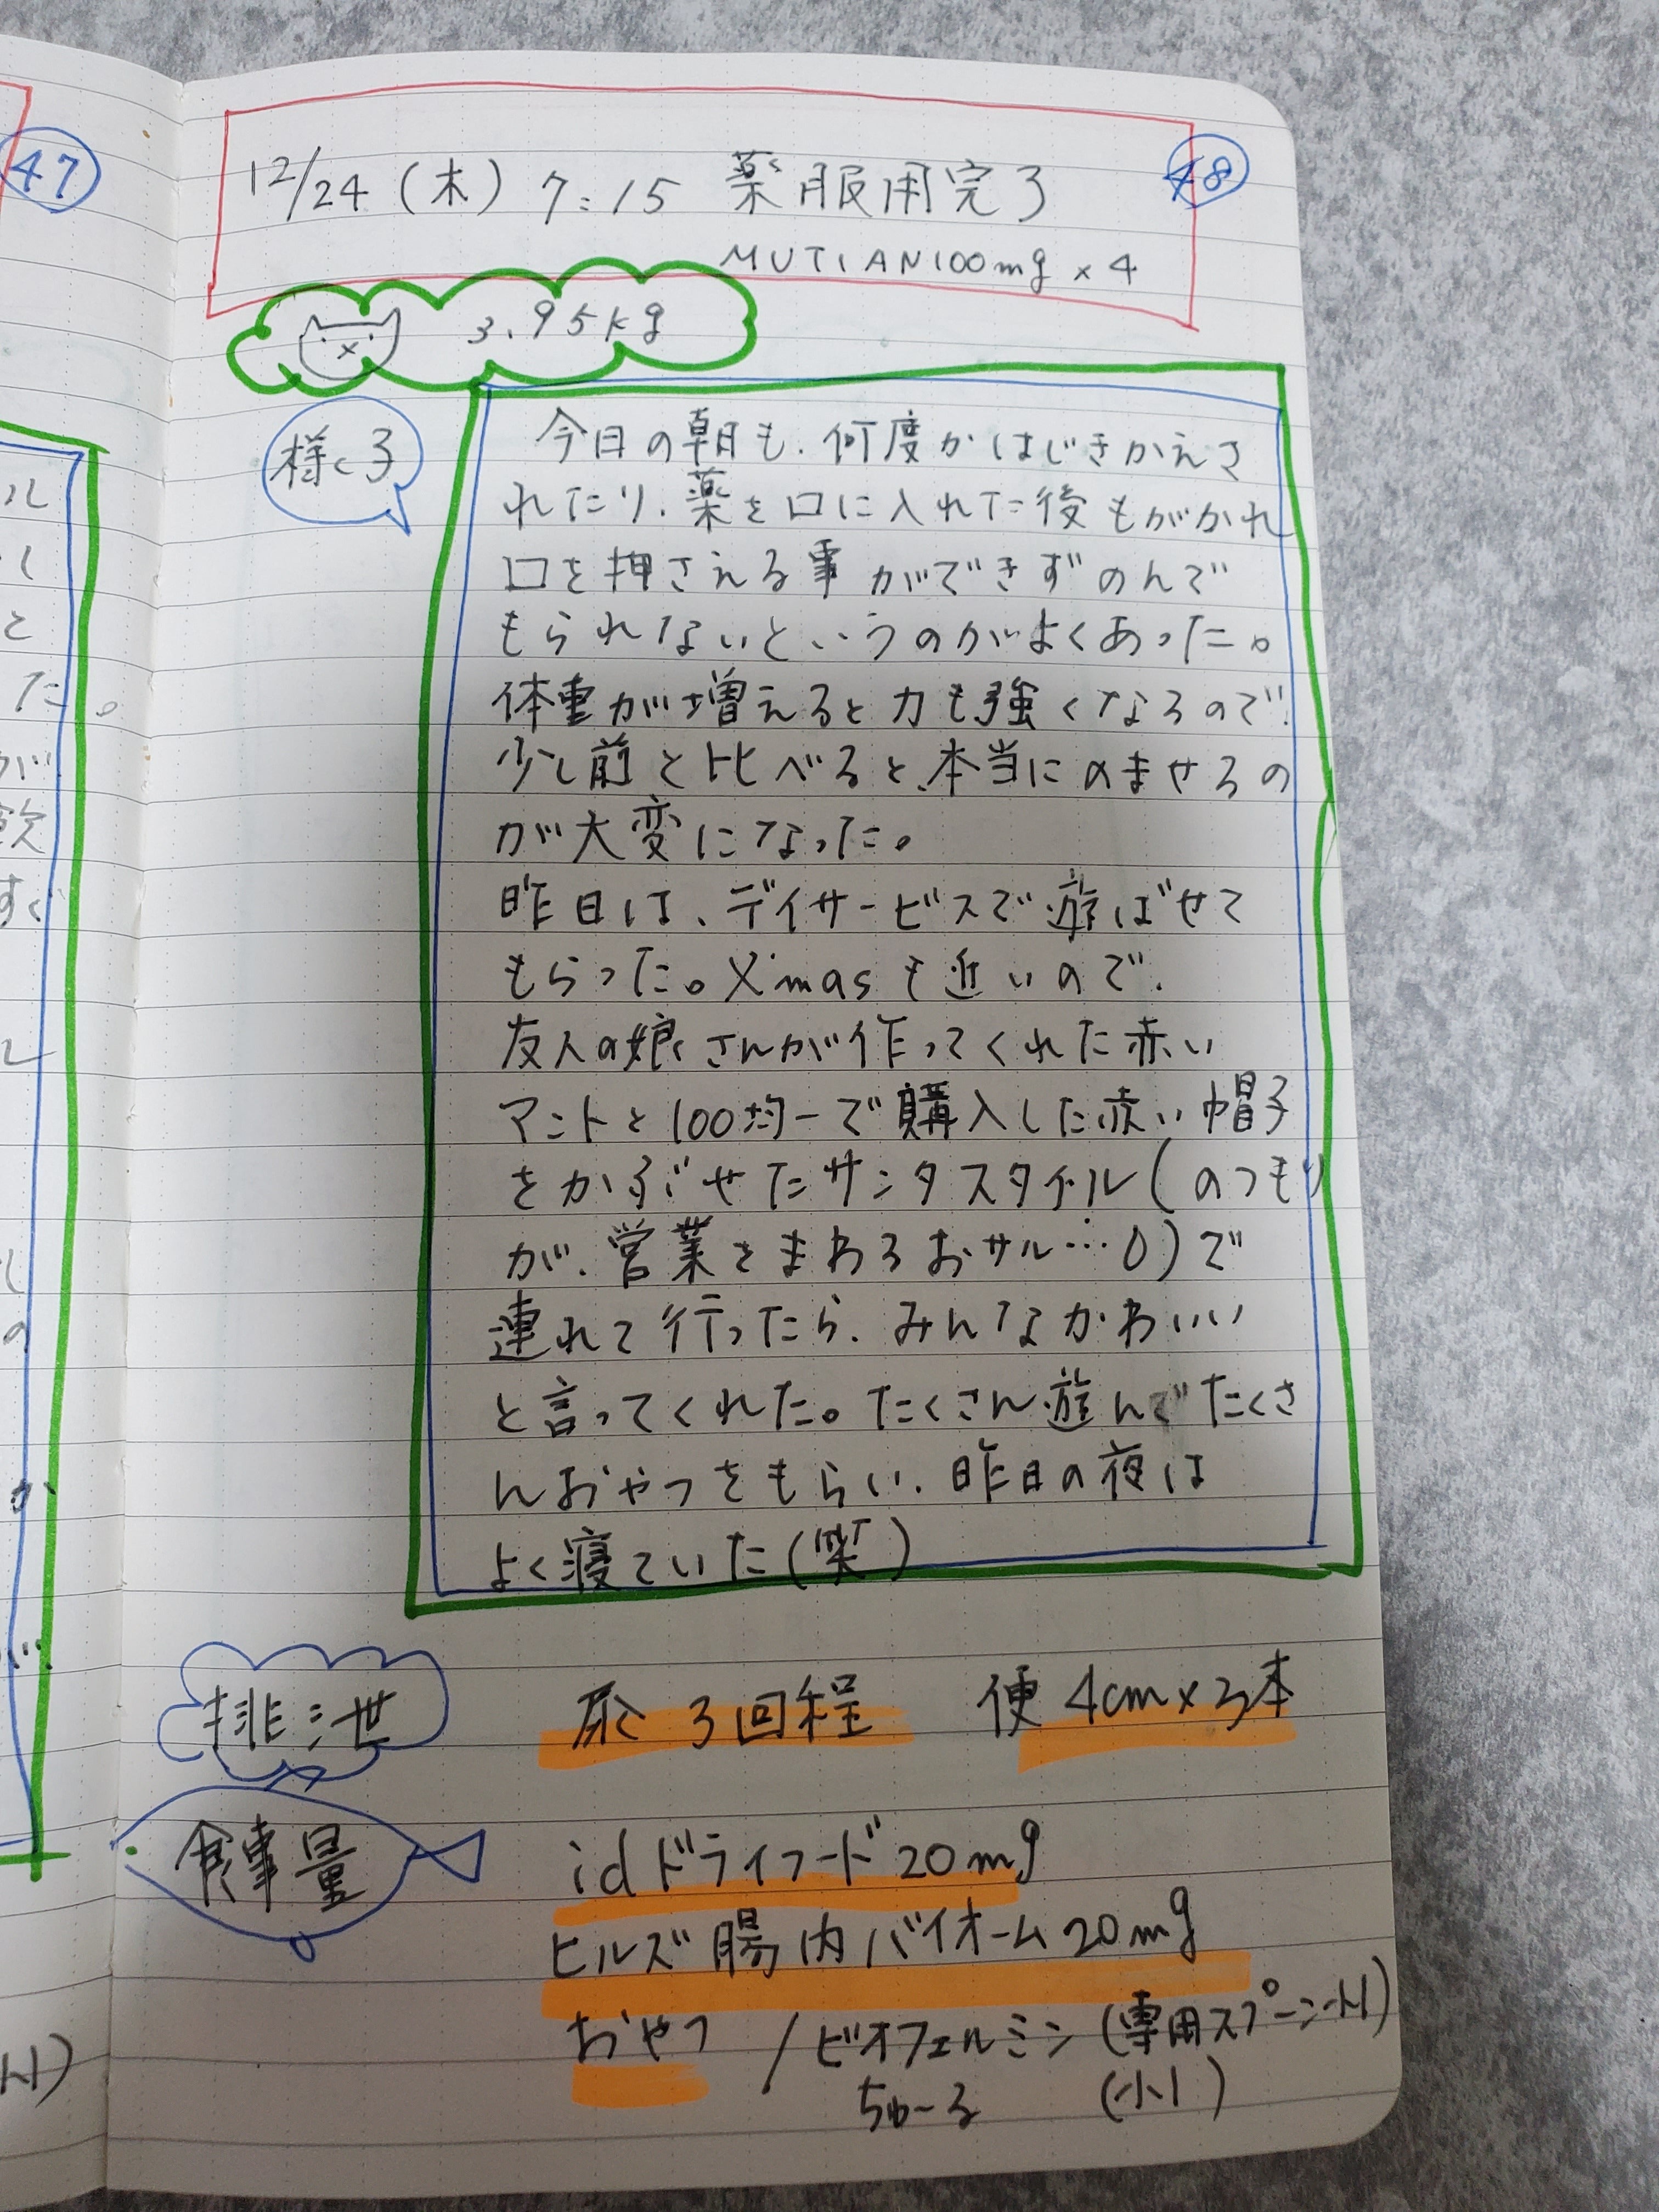 47
48
12/24（木）7:15 薬服用完了
MUTIAN100mg×4
3.95kg
様子
今日の朝も、何度かはじきかえさ
れたり、薬を口に入れた後もがかれ
口を押さえる事ができずのんで
もられないというのがよくあった。
体重が増えると力も強くなるので、
少し前と比べると、本当にのませるの
が大変になった。
昨日は、デイサービスで遊ばせて
もらった。X'masも近いので、
友人の娘さんが作ってくれた赤い
マントと100均一で購入した赤い帽子
をかぶせたサンタスタイル（のつもり
が、営業をまわるおサル…）で
連れて行ったら、みんなかわいい
と言ってくれた。たくさん遊んでたくさ
んおやつをもらい、昨日の夜は
よく寝ていた（笑）
排泄 尿3回程 便4cm×3本
食事量 idドライフード20mg
ヒルズ腸内バイオーム20mg
おやつ／ビオフェルミン（専用スプーン小1）
ちゅーる（小1）